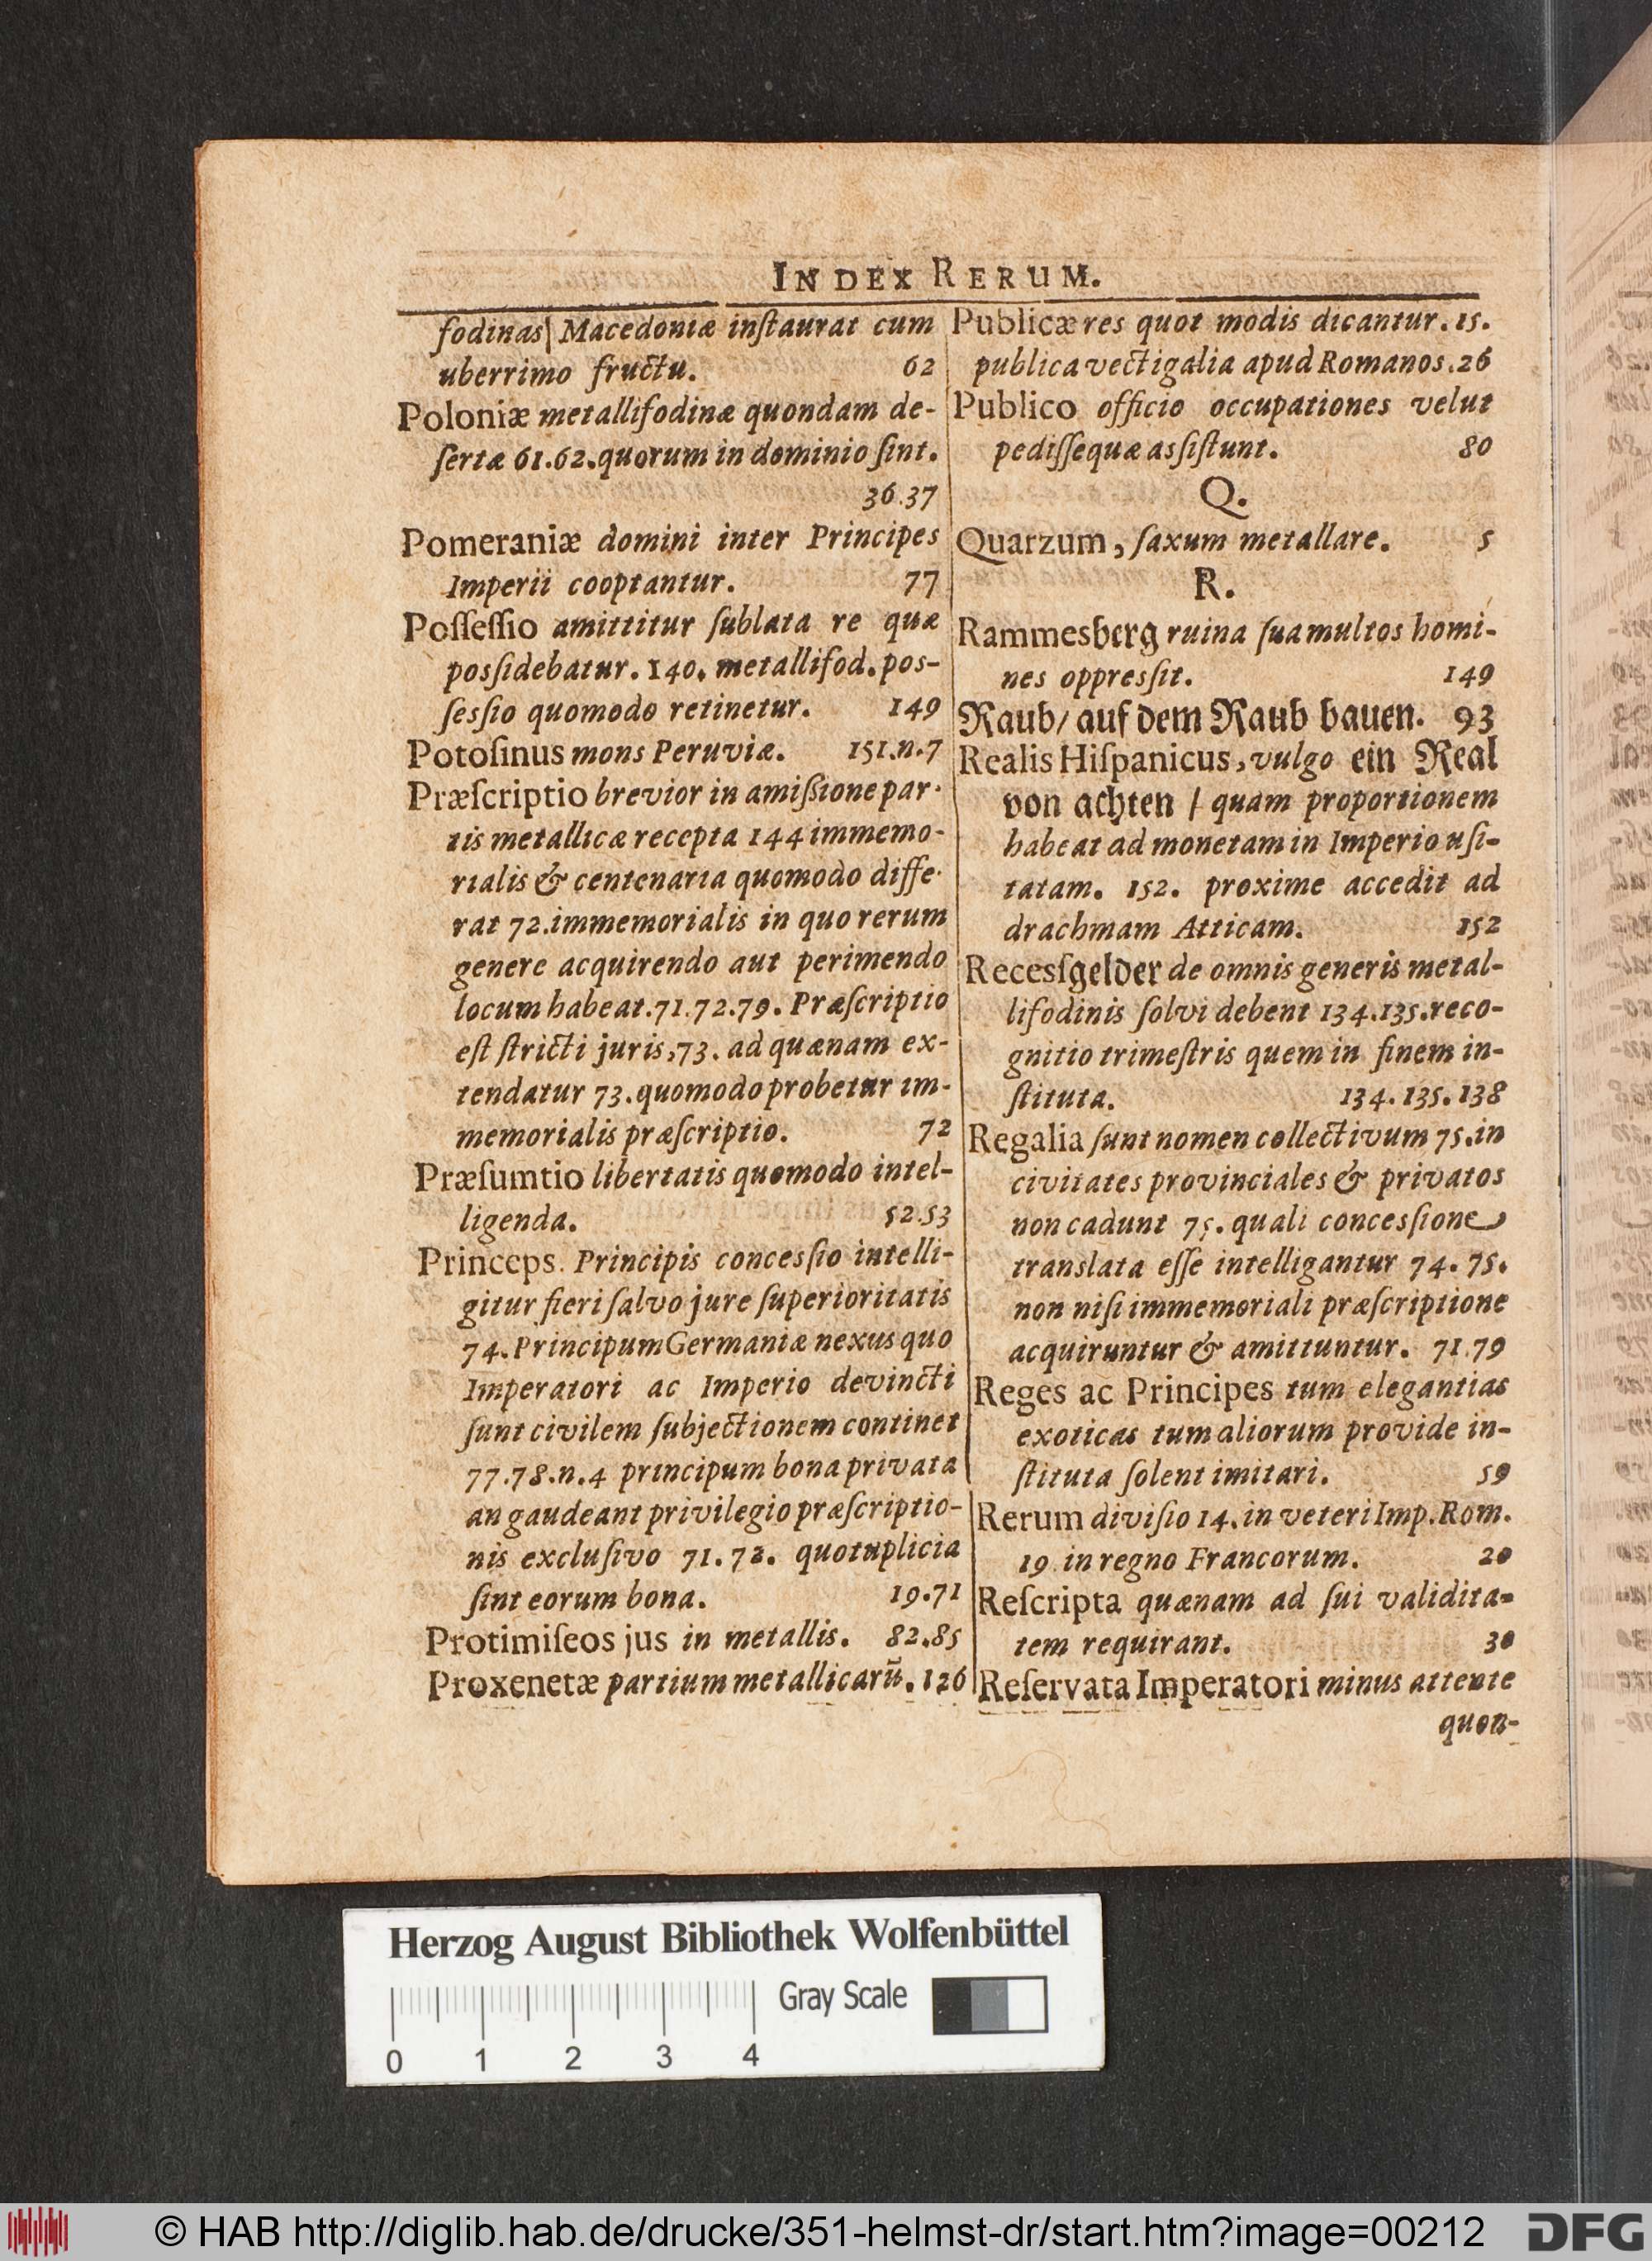 INDEX RERUM.
fodinas| Macedoniæ inſtaurat cum
uberrimo fructu. 62
Poloniæ metallifodinæ quondam de-
ſertæ 61.62.quorum in dominio ſint.
36.37
Pomeraniæ domini inter Principes
Imperii cooptantur. 77
Poſſeſſio amittitur ſublata re quæ
posſidebatur. 140. metallifod. pos-
ſesſio quomodo retinetur. 149
Potoſinus mons Peruviæ. 151.n.7
Præſcriptio brevior in amiſſione par-
tis metallicæ recepta 144 immemo-
rialis & centenaria quomodo diffe-
rat 72.immemorialis in quo rerum
genere acquirendo aut perimendo
locum habeat.71.72.79. Præſcriptio
eſt ſtricti juris,73. ad quænam ex-
tendatur 73.quomodo probetur im-
memorialis præſcriptio. 72
Præſumtio libertatis quomodo intel-
ligenda. 52.53
Princeps. Principis concesſio intelli-
gitur fieri ſalvo jure ſuperioritatis
74.Principum Germaniæ nexus quo
Imperatori ac Imperio devincti
ſunt civilem ſubjectionem continet
77.78.n.4 principum bona privata
an gaudeant privilegio præſcriptio-
nis excluſivo 71.72. quotuplicia
ſint eorum bona. 19.71
Protimiſeos jus in metallis. 82.85
Proxenetæ partium metallicarũ. 126
Publicæ res quot modis dicantur. 15.
publica vectigalia apud Romanos.26
Publico officio occupationes velut
pediſſequæ asſiſtunt. 80
Q.
Quarzum, ſaxum metallare. 5
R.
Rammesberg ruina ſua multos homi-
nes oppresſit. 149
Raub/ auf dem Raub bauen. 93
Realis Hiſpanicus, vulgo ein Real
von achten / quam proportionem
habeat ad monetam in Imperio uſi-
tatam. 152. proxime accedit ad
drachmam Atticam. 152
Recesſgelder de omnis generis metal-
lifodinis ſolvi debent 134.135.reco-
gnitio trimeſtris quem in finem in-
ſtituta. 134.135.138
Regalia ſunt nomen collectivum 75.in
civitates provinciales & privatos
non cadunt 75. quali concesſione
translata eſſe intelligantur 74.75.
non niſi immemoriali præſcriptione
acquiruntur & amittuntur. 71.79
Reges ac Principes tum elegantias
exoticas tum aliorum provide in-
ſtituta ſolent imitari. 59
Rerum diviſio 14. in veteri Imp. Rom.
19 in regno Francorum. 20
Reſcripta quænam ad ſui validita-
tem requirant. 30
Reſervata Imperatori minus attente
quon-
Herzog August Bibliothek Wolfenbüttel
Gray Scale
0 1 2 3 4
© HAB http://diglib.hab.de/drucke/351-helmst-dr/start.htm?image=00212
DFG